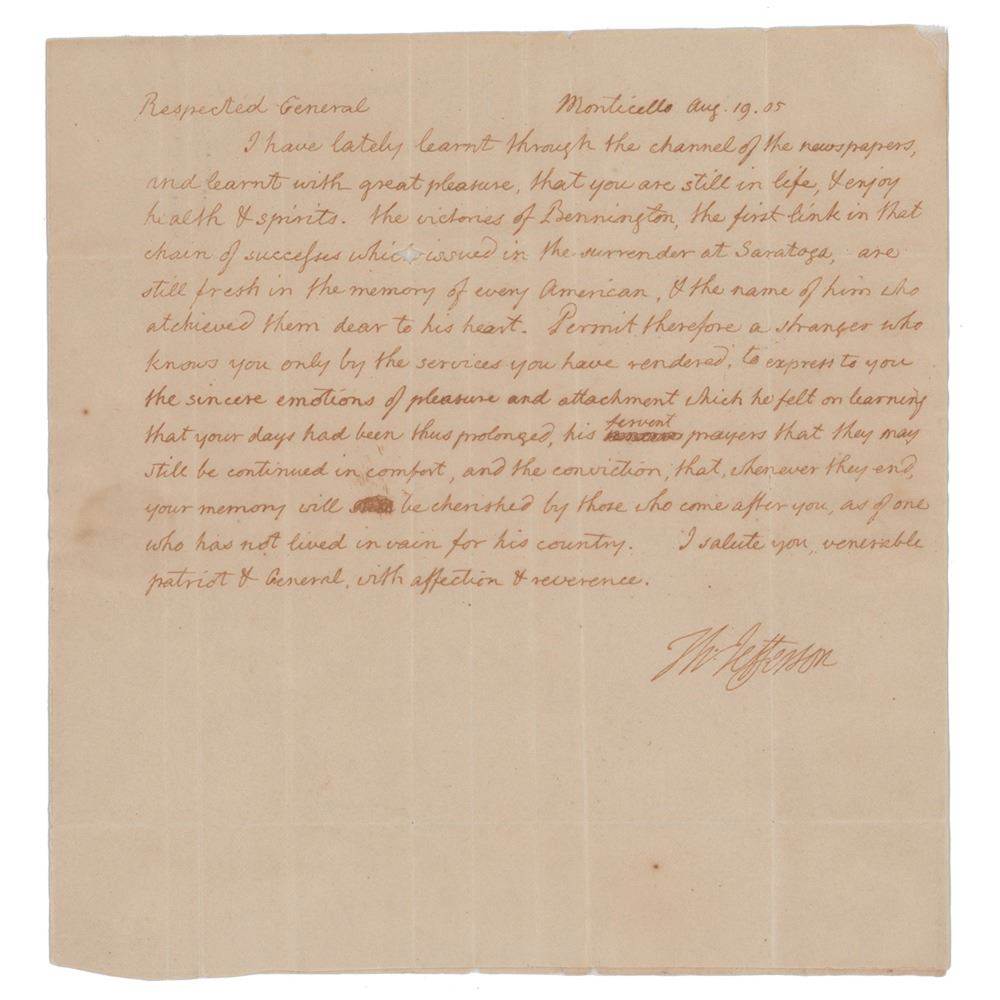 Respected General Monticello Aug. 19. 05
I have lately learnt through the channel of the newspapers,
and learnt with great pleasure, that you are still in life, & enjoy
health & spirits. the victories of Bennington, the first link in that
chain of successes which issued in the surrender at Saratoga, are
still fresh in the memory of every American, & the name of him who
atchieved them dear to his heart. Permit therefore a stranger who
knows you only by the services you have rendered, to express to you
the sincere emotions of pleasure and attachment which he felt on learning
that your days had been thus prolonged, his fervent prayers that they may
still be continued in comfort, and the conviction, that, whenever they end,
your memory will be cherished by those who come after you, as of one
who has not lived in vain for his country. I salute you, venerable
patriot & General, with affection & reverence.
Th: Jefferson